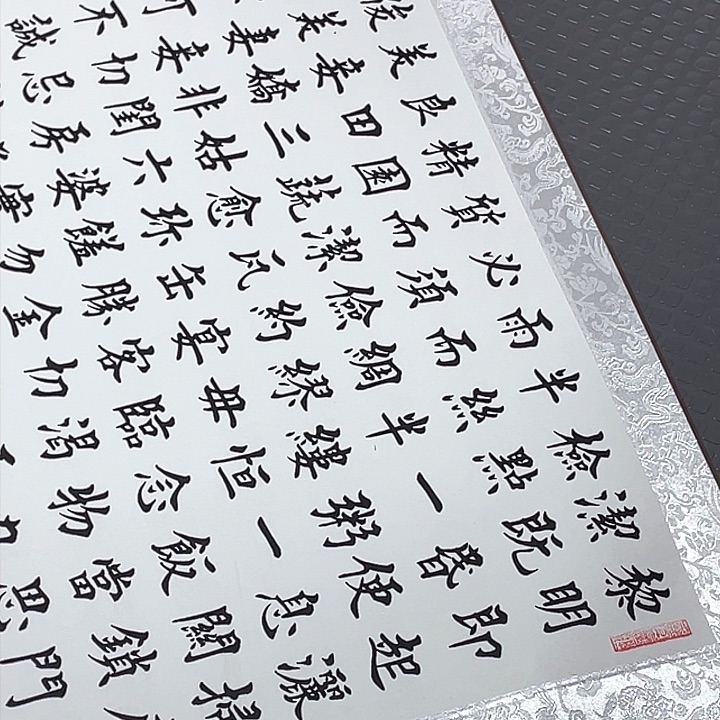 黎明即起灑掃
潔既昏便息關鎖門
檢點一粥一飯當思
半絲半縷恆念物力
雨而綢繆毋臨渴
必須儉約宴客切
質而潔瓦缶勝金
精園蔬愈珍饈勿
良田三姑六婆實
美妾嬌非閨房
俊美妻妾切忌
可不誠